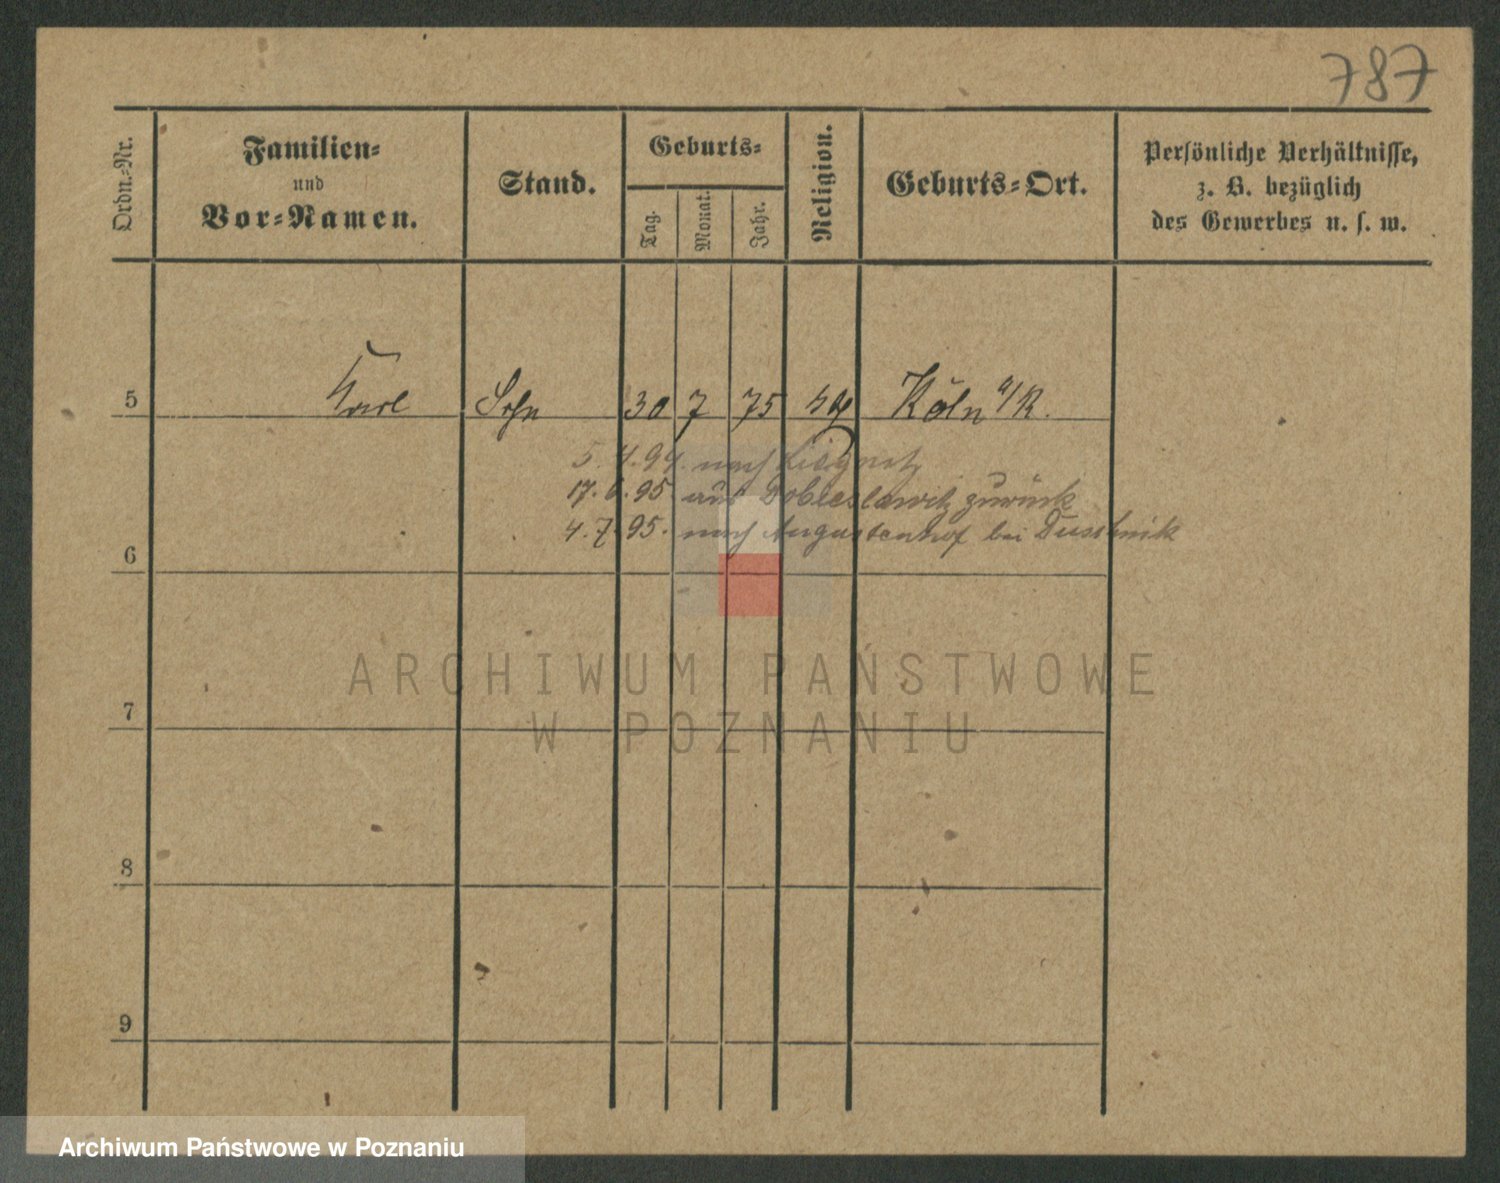 787
Ordn.-Nr.
Familien-
und
Vor-Namen.
Stand.
Geburts-
Tag.
Monat.
Jahr.
Religion.
Geburts-Ort.
Persönliche Verhältnisse,
z. B. bezüglich
des Gewerbes u. s. w.
5 Karl Sohn 30 7 75 Köln a/R.
5.4.94. nach Liegnitz
17.6.95. aus Dobieslawitz zurück
4.7.95. nach Augustenhof bei Duschnik
6
7
8
9
ARCHIWUM PAŃSTWOWE
W POZNANIU
Archiwum Państwowe w Poznaniu